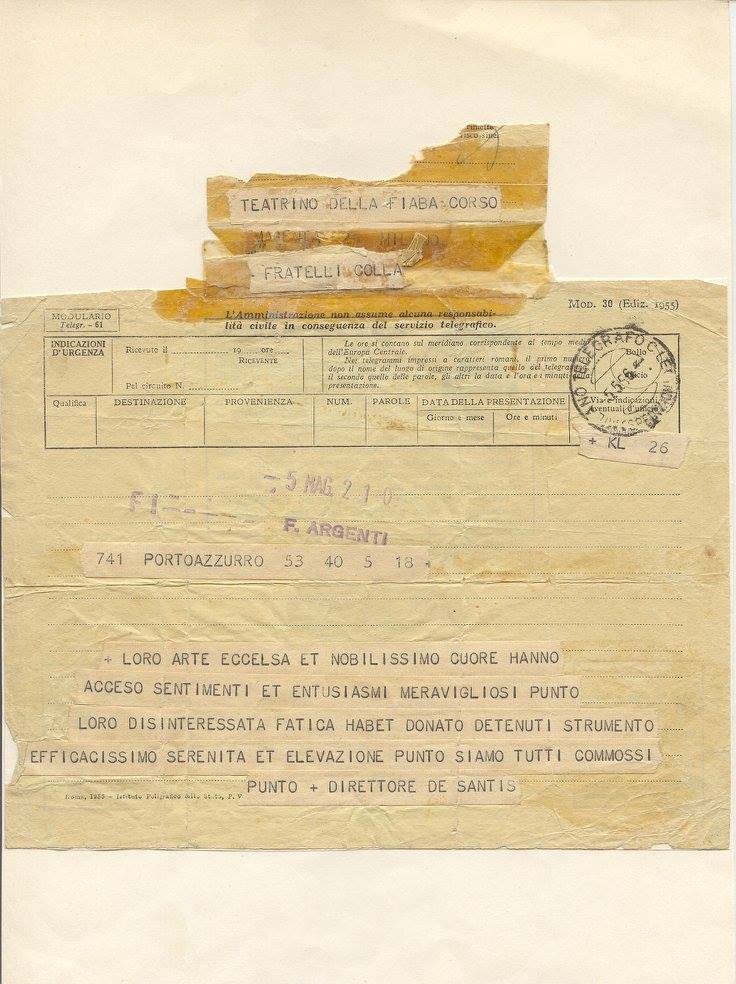 TEATRINO DELLA FIABA CORSO
MILANO
FRATELLI COLLA
MODULARIO
Telegr. - 61
L'Amministrazione non assume alcuna responsabi-
lità civile in conseguenza del servizio telegrafico.
Mod. 30 (Ediz. 1955)
INDICAZIONI
D'URGENZA
Ricevuto il 19 ore
RICEVENTE
Pel circuito N.
Le ore si contano sul meridiano corrispondente al tempo medio
dell'Europa Centrale.
Nei telegrammi impressi a caratteri romani, il primo numero
dopo il nome del luogo di origine rappresenta quello del telegramma,
il secondo quello delle parole, gli altri la data e l'ora e i minuti
presentazione.
Bollo
Ufficio
Qualifica DESTINAZIONE PROVENIENZA NUM. PAROLE DATA DELLA PRESENTAZIONE
Giorno e mese Ore e minuti
Via e indicazioni
eventuali d'ufficio
+ KL 26
5 MAG. 210
F. ARGENTI
741 PORTOAZZURRO 53 40 5 18
+ LORO ARTE ECCELSA ET NOBILISSIMO CUORE HANNO
ACCESO SENTIMENTI ET ENTUSIASMI MERAVIGLIOSI PUNTO
LORO DISINTERESSATA FATICA HABET DONATO DETENUTI STRUMENTO
EFFICACISSIMO SERENITA ET ELEVAZIONE PUNTO SIAMO TUTTI COMMOSSI
PUNTO + DIRETTORE DE SANTIS
Roma, 1955 - Istituto Poligrafico dello Stato, P. V